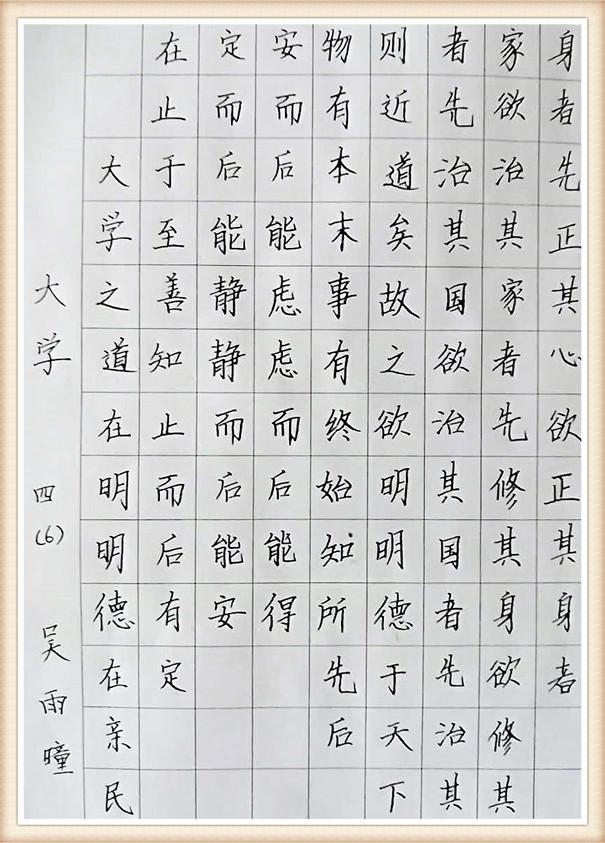 大学
四(6)
吴雨曈
大学之道在明明德在亲民
在止于至善知止而后有定
定而后能静静而后能安
安而后能虑虑而后能得
物有本末事有终始知所先后
则近道矣故之欲明明德于天下
者先治其国欲治其国者先治其
家欲治其家者先修其身欲修其
身者先正其心欲正其身者